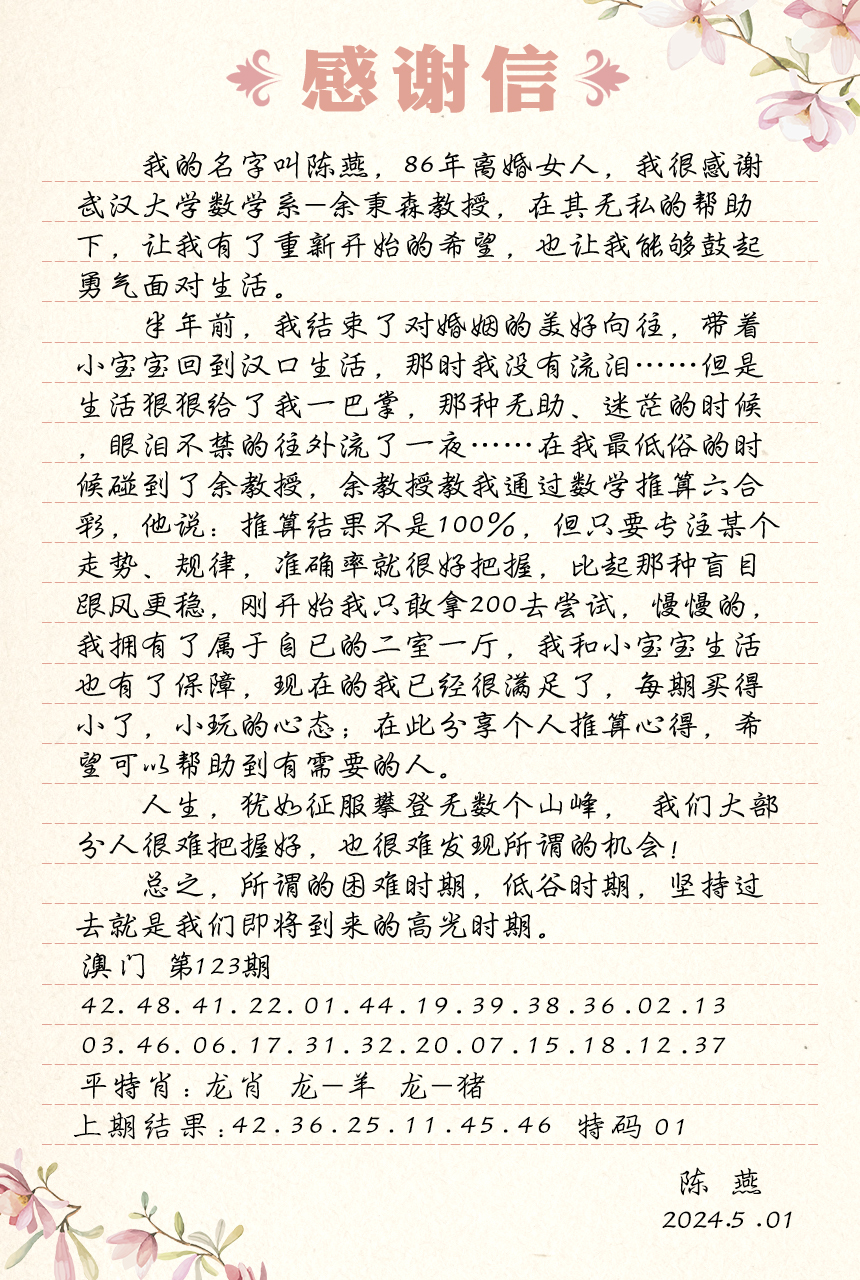 感谢信
我的名字叫陈燕，86年离婚女人，我很感谢
武汉大学数学系—余秉森教授，在其无私的帮助
下，让我有了重新开始的希望，也让我能够鼓起
勇气面对生活。
半年前，我结束了对婚姻的美好向往，带着
小宝宝回到汉口生活，那时我没有流泪……但是
生活狠狠给了我一巴掌，那种无助、迷茫的时候
，眼泪不禁的往外流了一夜……在我最低俗的时
候碰到了余教授，余教授教我通过数学推算六合
彩，他说：推算结果不是100%，但只要专注某个
走势、规律，准确率就很好把握，比起那种盲目
跟风更稳，刚开始我只敢拿200去尝试，慢慢的，
我拥有了属于自已的二室一厅，我和小宝宝生活
也有了保障，现在的我已经很满足了，每期买得
小了，小玩的心态；在此分享个人推算心得，希
望可以帮助到有需要的人。
人生，犹如征服攀登无数个山峰， 我们大部
分人很难把握好，也很难发现所谓的机会！
总之，所谓的困难时期，低谷时期，坚持过
去就是我们即将到来的高光时期。
澳门 第123期
42.48.41.22.01.44.19.39.38.36.02.13
03.46.06.17.31.32.20.07.15.18.12.37
平特肖：龙肖 龙—羊 龙—猪
上期结果：42.36.25.11.45.46 特码 01
陈 燕
2024.5 .01